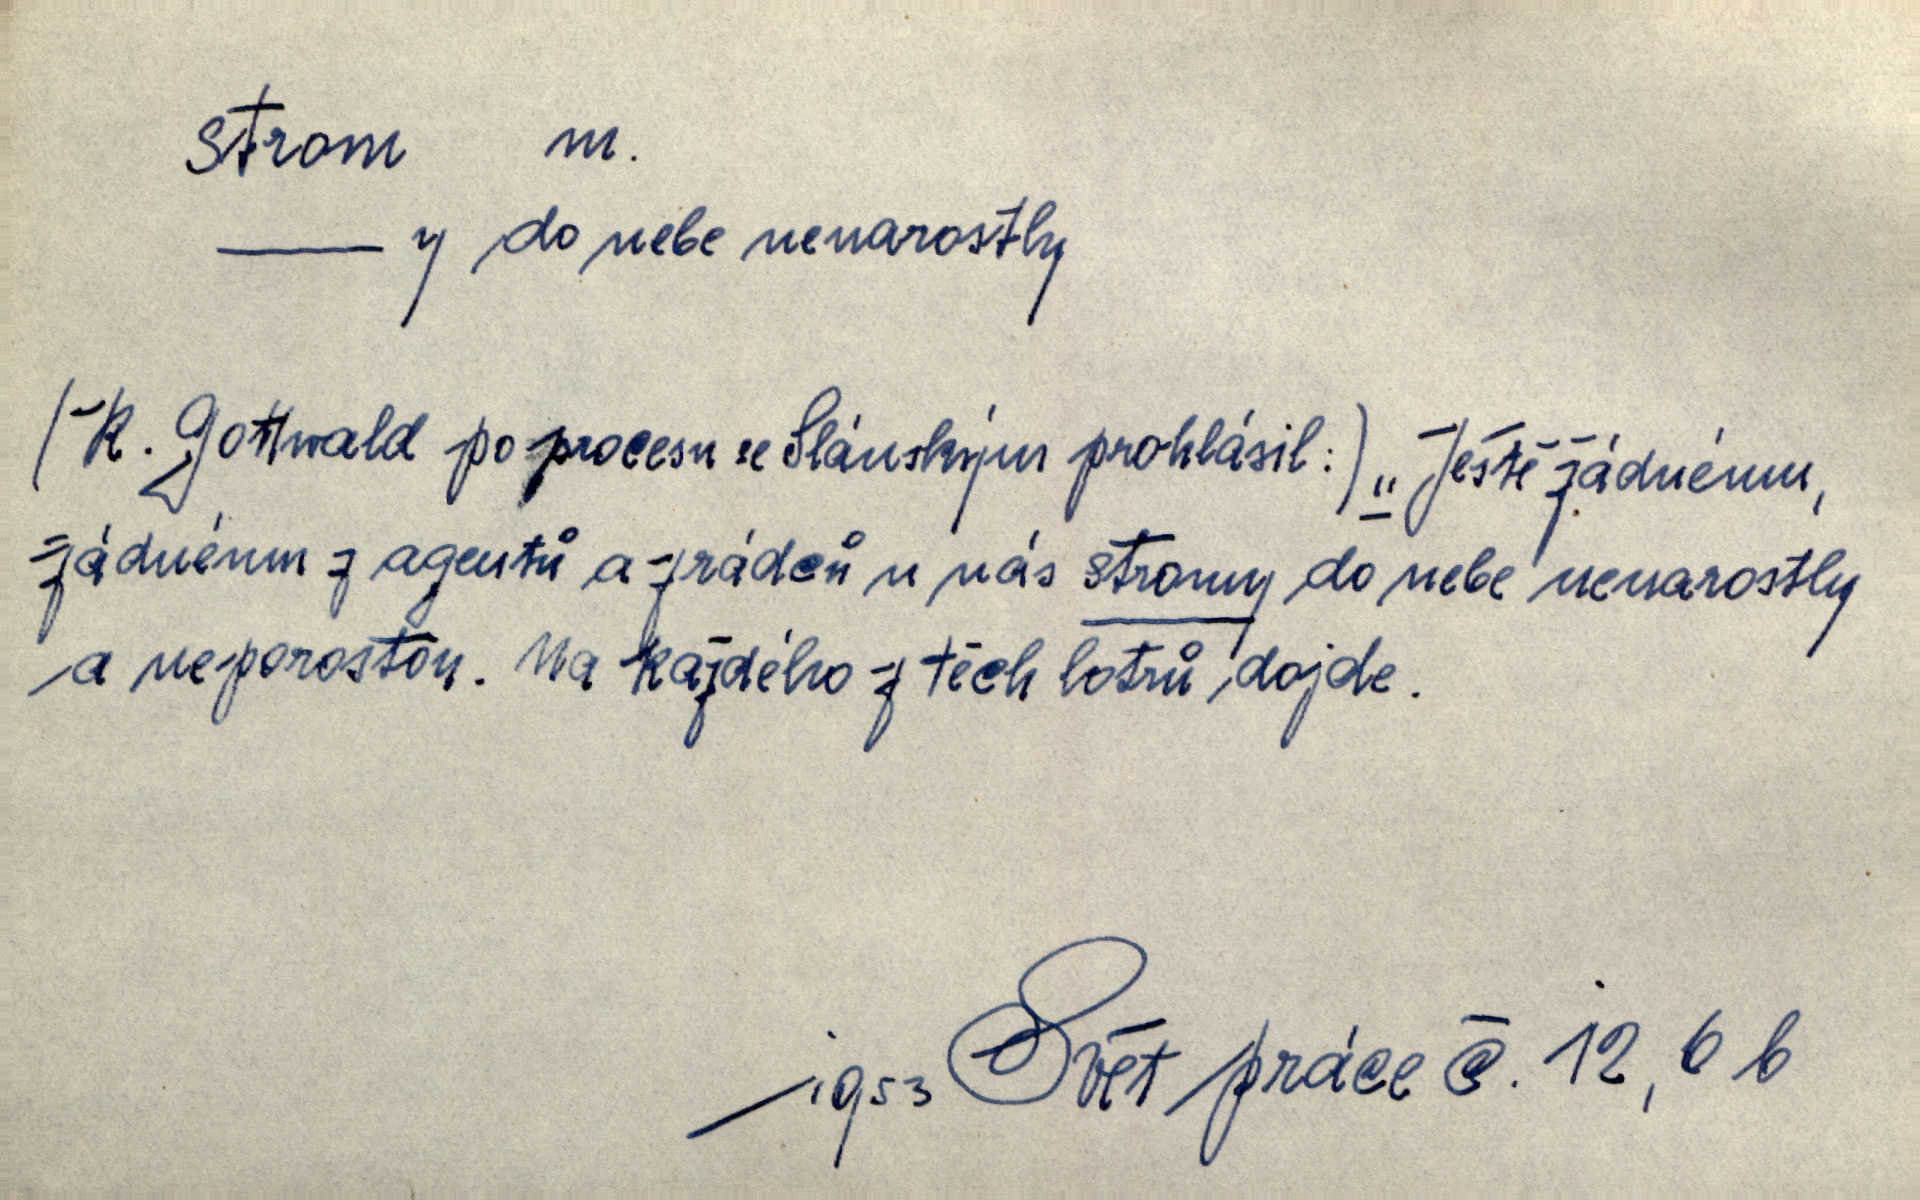 strom m.
——y do nebe nenarostly
(K. Gottwald po procesu se Slánským prohlásil:) „Ještě žádnému,
žádnému z agentů a zrádců u nás stromy do nebe nenarostly
a neporostou. Na každého z těch lotrů dojde.
1953 Svět práce č. 12, 6 b